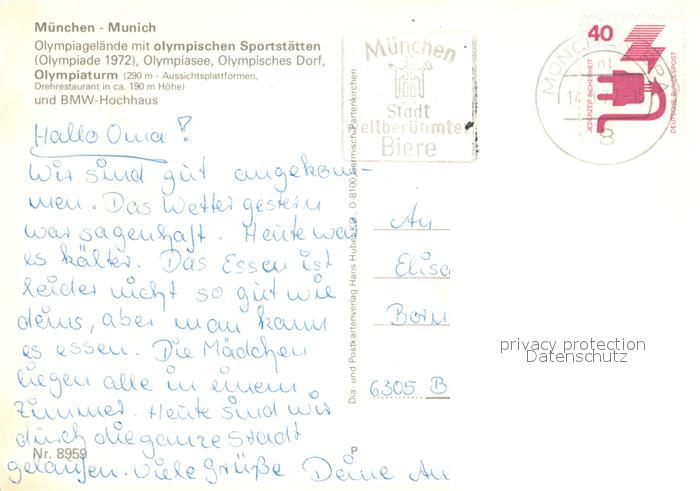 München - Munich
Olympiagelände mit olympischen Sportstätten
(Olympiade 1972), Olympiasee, Olympisches Dorf,
Olympiaturm (290 m - Aussichtsplattformen,
Drehrestaurant in ca. 190 m Höhe)
und BMW-Hochhaus
Hallo Oma!
Wir sind gut angekom-
men. Das Wetter gestern
war sagenhaft. Heute war
es kälter. Das Essen ist
leider nicht so gut wie
deins, aber man kann
es essen. Die Mädchen
liegen alle in einem
Zimmer. Heute sind wir
durch die ganze Stadt
gelaufen. Viele Grüße Deine An
Nr. 8959
P
Dia- und Postkartenverlag Hans Huber KG, D-8100 Garmisch-Partenkirchen
München
Stadt
weltberühmter
Biere
40
JEDERZEIT SICHERHEIT
DEUTSCHE BUNDESPOST
MÜNCHEN
8
An
Elisa
Born
6305 B
privacy protection
Datenschutz